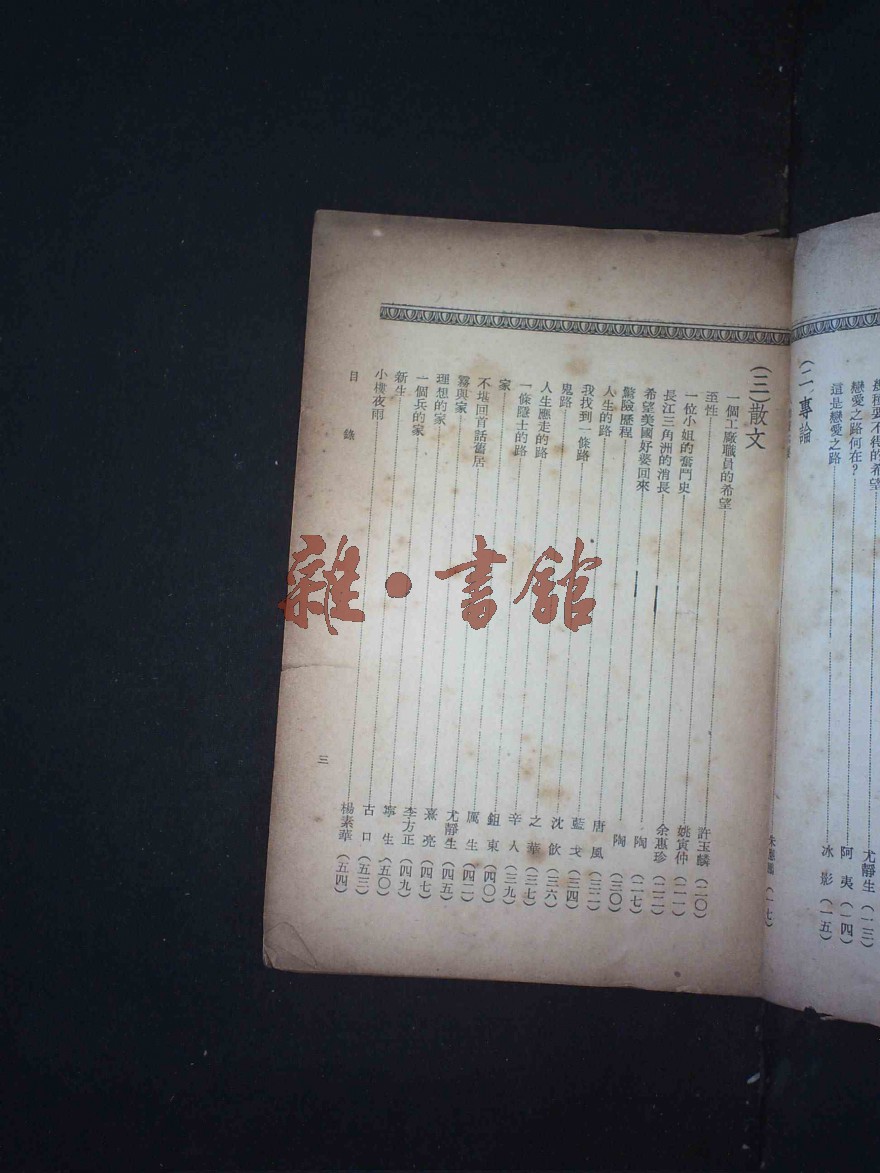 幾種要不得的希望 尤靜生 (一三)
戀愛之路何在? 阿夷 (一四)
這是戀愛之路 冰影 (一五)
(二)專論
(一七)
(三)散文
一個工廠職員的希望 許玉麟 (二〇)
至性 姚寅仲 (二一)
一位小姐的奮鬥史 余惠珍 (二二)
長江三角洲的消長 陶 (二七)
希望美國好婆回來 陶 (三〇)
驚險歷程 唐風 (三二)
人生的路 藍戈 (三四)
我找到一條路 沈飲 (三六)
鬼路 之華 (三七)
人生應走的路 辛人 (三九)
一條隧土的路 鈕東 (四〇)
家 厲生 (四二)
不堪回首話舊居 尤靜生 (四五)
霧與家 熹亮 (四七)
理想的家 李方正 (四九)
一個兵的家 寧生 (五〇)
新生 古口 (五三)
小樓夜雨 楊素華 (五四)
目錄
三
雜·書館